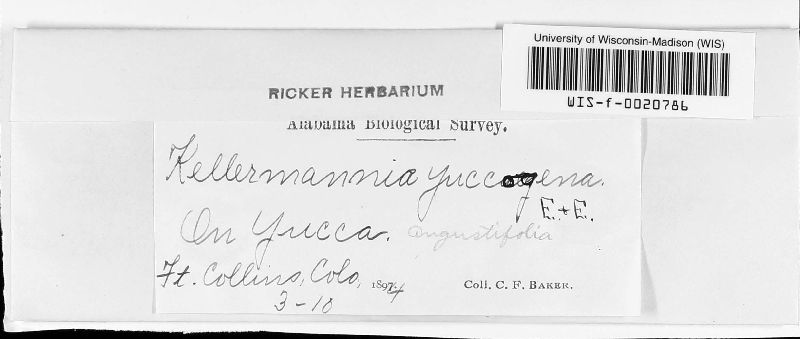 University of Wisconsin-Madison (WIS)
WIS-f-0020786
RICKER HERBARIUM
Alabama Biological Survey.
Kellermannia yuccogena.
E. + E.
On Yucca. angustifolia
Ft. Collins, Colo, 1894
3-10
Coll. C. F. BAKER.